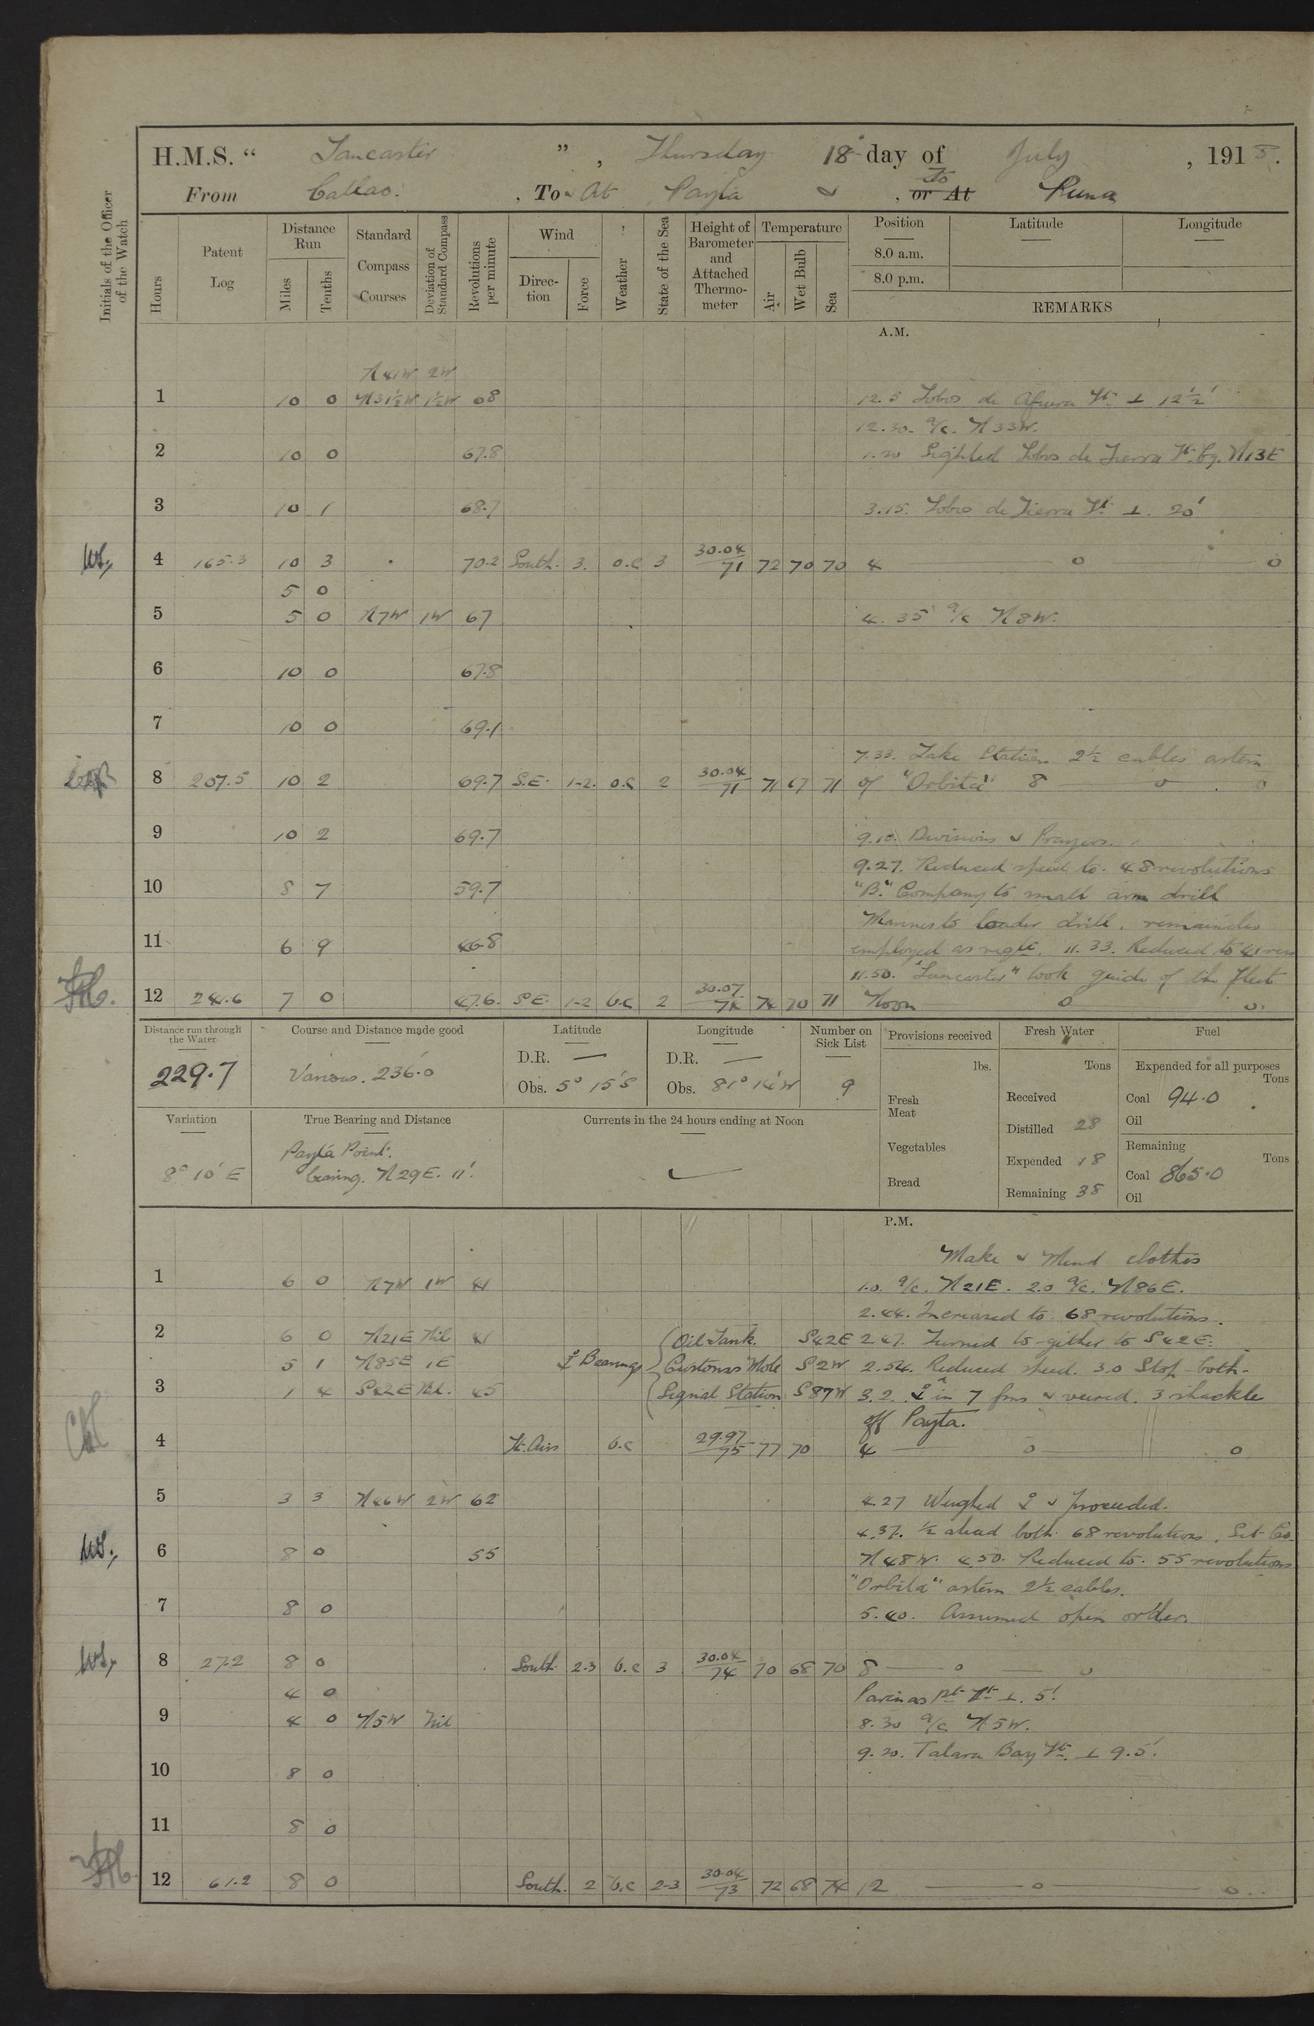 H.M.S. “ Lancaster ” , Thursday 18 day of July , 1918.
From Callao. , To & At Payta & , or At to Puna
Initials of the Officer of the Watch
Hours
Patent Log
Distance Run
Miles
Tenths
Standard Compass Courses
Deviation of Standard Compass
Revolutions per minute
Wind
Direction
Force
Weather
State of the Sea
Height of Barometer and Attached Thermometer
Temperature
Air
Wet Bulb
Sea
Position
Latitude
Longitude
8.0 a.m.
8.0 p.m.
REMARKS
A.M.
N41W 2W
1 10 0 N31½W 1½W 68 12.5 Lobos de Afuera Lt. ⊥ 12½'
12.30. a/c. N33W.
2 10 0 67.8 1.20 Sighted Lobos de Tierra Lt. bg. N13E
3 10 1 68.1 3.15. Lobos de Tierra Lt. ⊥. 20'
4 165.3 10 3 70.2 South. 3. o.c 3 30.04/71 72 70 70 4 — o — o
5 0
5 5 0 N7W 1W 67 4.35 a/c N8W.
6 10 0 67.8
7 10 0 69.1
7.33. Take Station 2½ cables astern
8 207.5 10 2 69.7 S.E. 1-2. o.c 2 30.04/71 71 67 71 of "Orbita" 8 — o o
9 10 2 69.7 9.10. Divisions & Prayers.
9.27. Reduced speed to. 48 revolutions
10 8 7 59.7 "B." Company to small arm drill
Marines to loader drill. remainder
11 6 9 46.8 employed as reqte. 11.33. Reduced to 41 revs
11.50. "Lancaster" took guide of the fleet
12 241.6 7 0 47.6. SE. 1-2 b.c 2 30.07/74 74 70 71 Noon o o.
Distance run through the Water
229.7
Course and Distance made good
Various. 236.0
Latitude
D.R. —
Obs. 5° 15'S
Longitude
D.R. —
Obs. 81° 14'W
Number on Sick List
9
Provisions received
lbs.
Fresh Meat
Vegetables
Bread
Fresh Water
Tons
Received
Distilled 28
Expended 18
Remaining 38
Fuel
Expended for all purposes
Tons
Coal 94.0
Oil
Remaining
Tons
Coal 865.0
Oil
Variation
8° 10' E
True Bearing and Distance
Payta Point.
bearing. N29E. 11'.
Currents in the 24 hours ending at Noon
P.M.
Make & Mend clothes
1 6 0 N7W 1W 41 1.0. a/c. N21E. 2.0 a/c. N86E.
2.44. Increased to 68 revolutions.
2 6 0 N21E Nil 41 Oil Tank. S42E 2.47. Turned to-gether to S42E.
5 1 N85E 1E ⚓ Bearings Customs Mole S2W 2.54. Reduced speed. 3.0 Stop both.
3 1 4 S42E Nil. 45 Signal Station S87W 3.2. ⚓ in 7 fms & veered. 3 shackle
off Payta.
4 Lt. Airs b.c 29.97/75 77 70 4 — o — o
5 3 3 N46W 2W 62 4.27 Weighed ⚓ & proceeded.
4.37. ½ ahead both. 68 revolutions. Set Co.
6 8 0 55 N48W. 4.50. Reduced to. 55 revolutions
"Orbita" astern 2½ cables.
7 8 0 5.40. Assumed open order.
8 27.2 8 0 South. 2-3 b.c 3 30.04/74 70 68 70 8 — o — o
4 0 Parinas Pt. Lt. ⊥. 5'.
9 4 0 N5W Nil 8.30 a/c N5W.
9.20. Talara Bay Lt. ⊥ 9.5'.
10 8 0
11 8 0
12 61.2 8 0 South. 2 b.c 2-3 30.04/73 72 68 74 12 — o — o